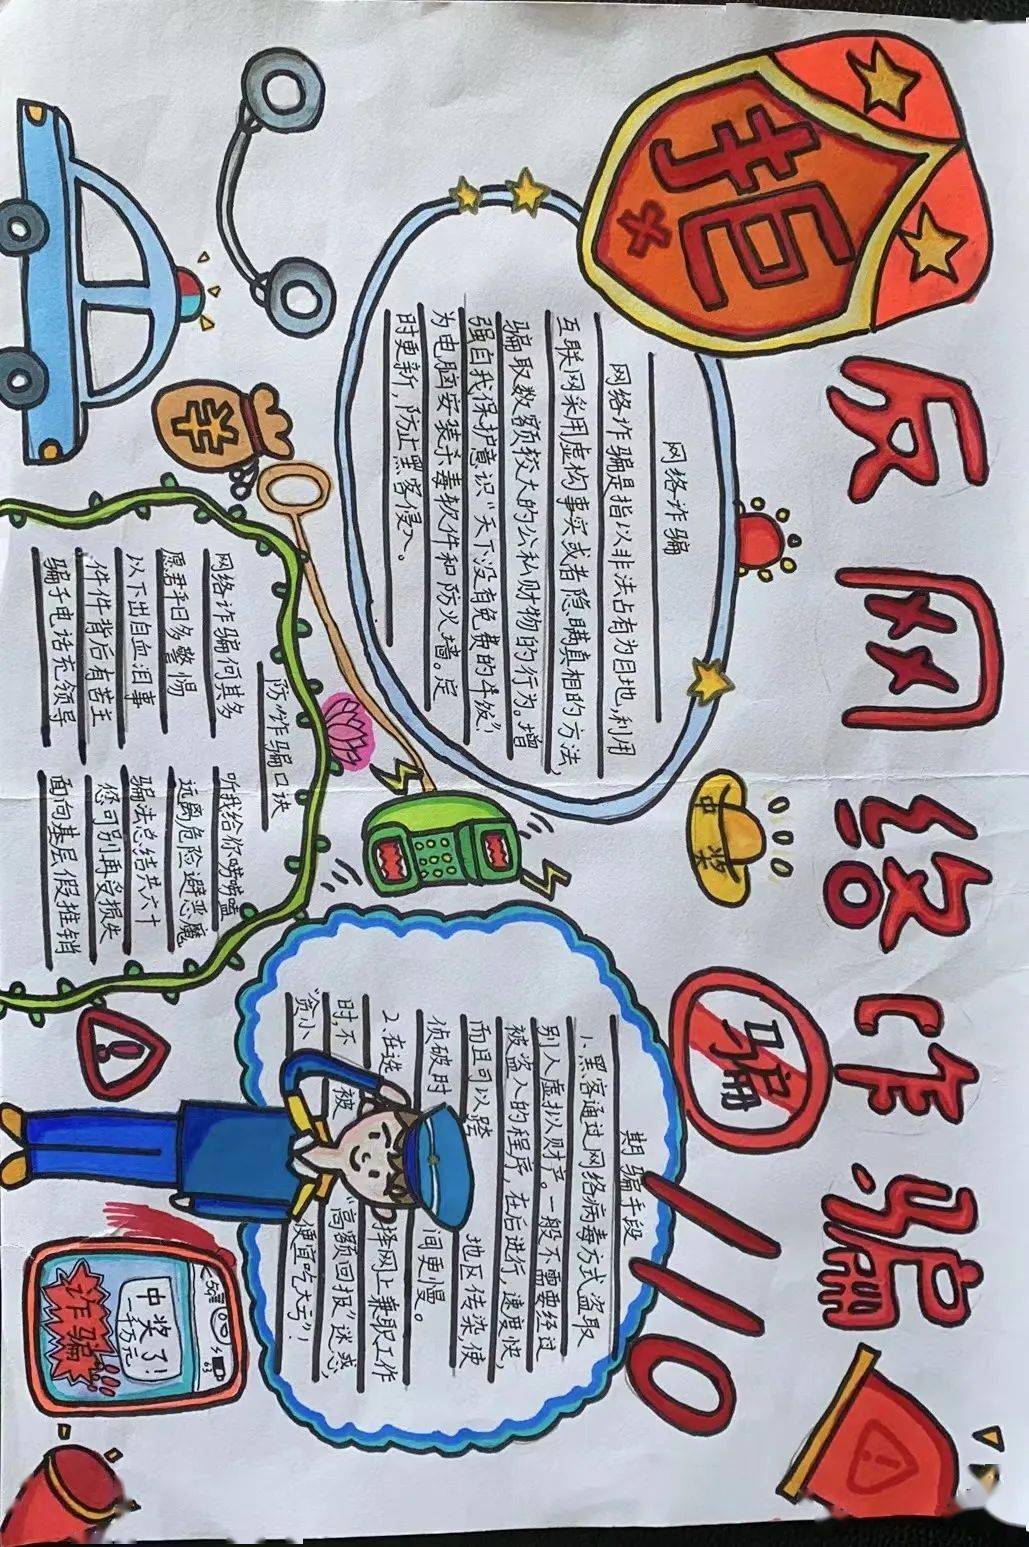 拒
反网络诈骗
网络诈骗
网络诈骗是指以非法占有为目地,利用
互联网采用虚构事实或者隐瞒真相的方法,
骗取数额较大的公私财物的行为。增
强自我保护意识“天下没有免费的午饭”!
为电脑安装杀毒软件和防火墙。定
时更新,防止黑客侵入。
中奖
骗
110
期骗手段
1、黑客通过网络病毒方式盗取
别人虚拟财产。一般不需要经过
被盗入的程序,在后进行,速度快,
而且可以跨 地区传染,使
侦破时 间更慢。
2.在选 择网上兼职工作
时,不 被 “高额回报”迷惑,
“贪小 便宜吃大亏”!
防诈骗口诀
网络诈骗何其多
愿君平日多警惕
以下出自血泪事
件件背后有苦主
骗子电话充领导
听我给你唠唠嗑
远离危险避恶魔
骗法总结共六十
您可别再受损失
面向基层假推销
5G
63
中奖了!
一千万元
诈骗